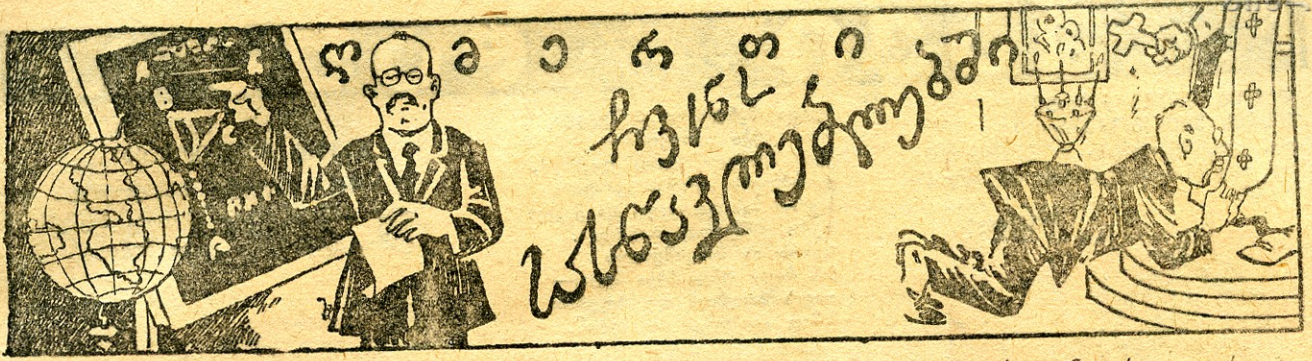 ღმერთი
ჩვენს
სასწავლებლებში